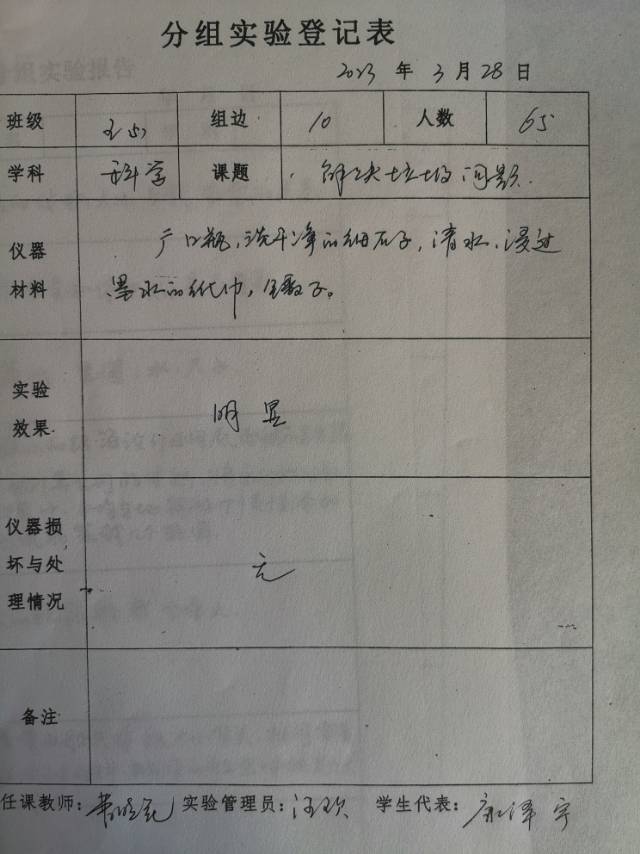 分组实验登记表
2023 年 3 月 28 日
班级 组边 10 人数 65
学科 科学 课题 解决垃圾问题.
仪器 广口瓶,洗干净的细石子,清水,浸过
材料 墨水的纸巾,镊子。
实验
效果 明显
仪器损
坏与处 无
理情况
备注
任课教师: 实验管理员:汪欢 学生代表:康泽宇